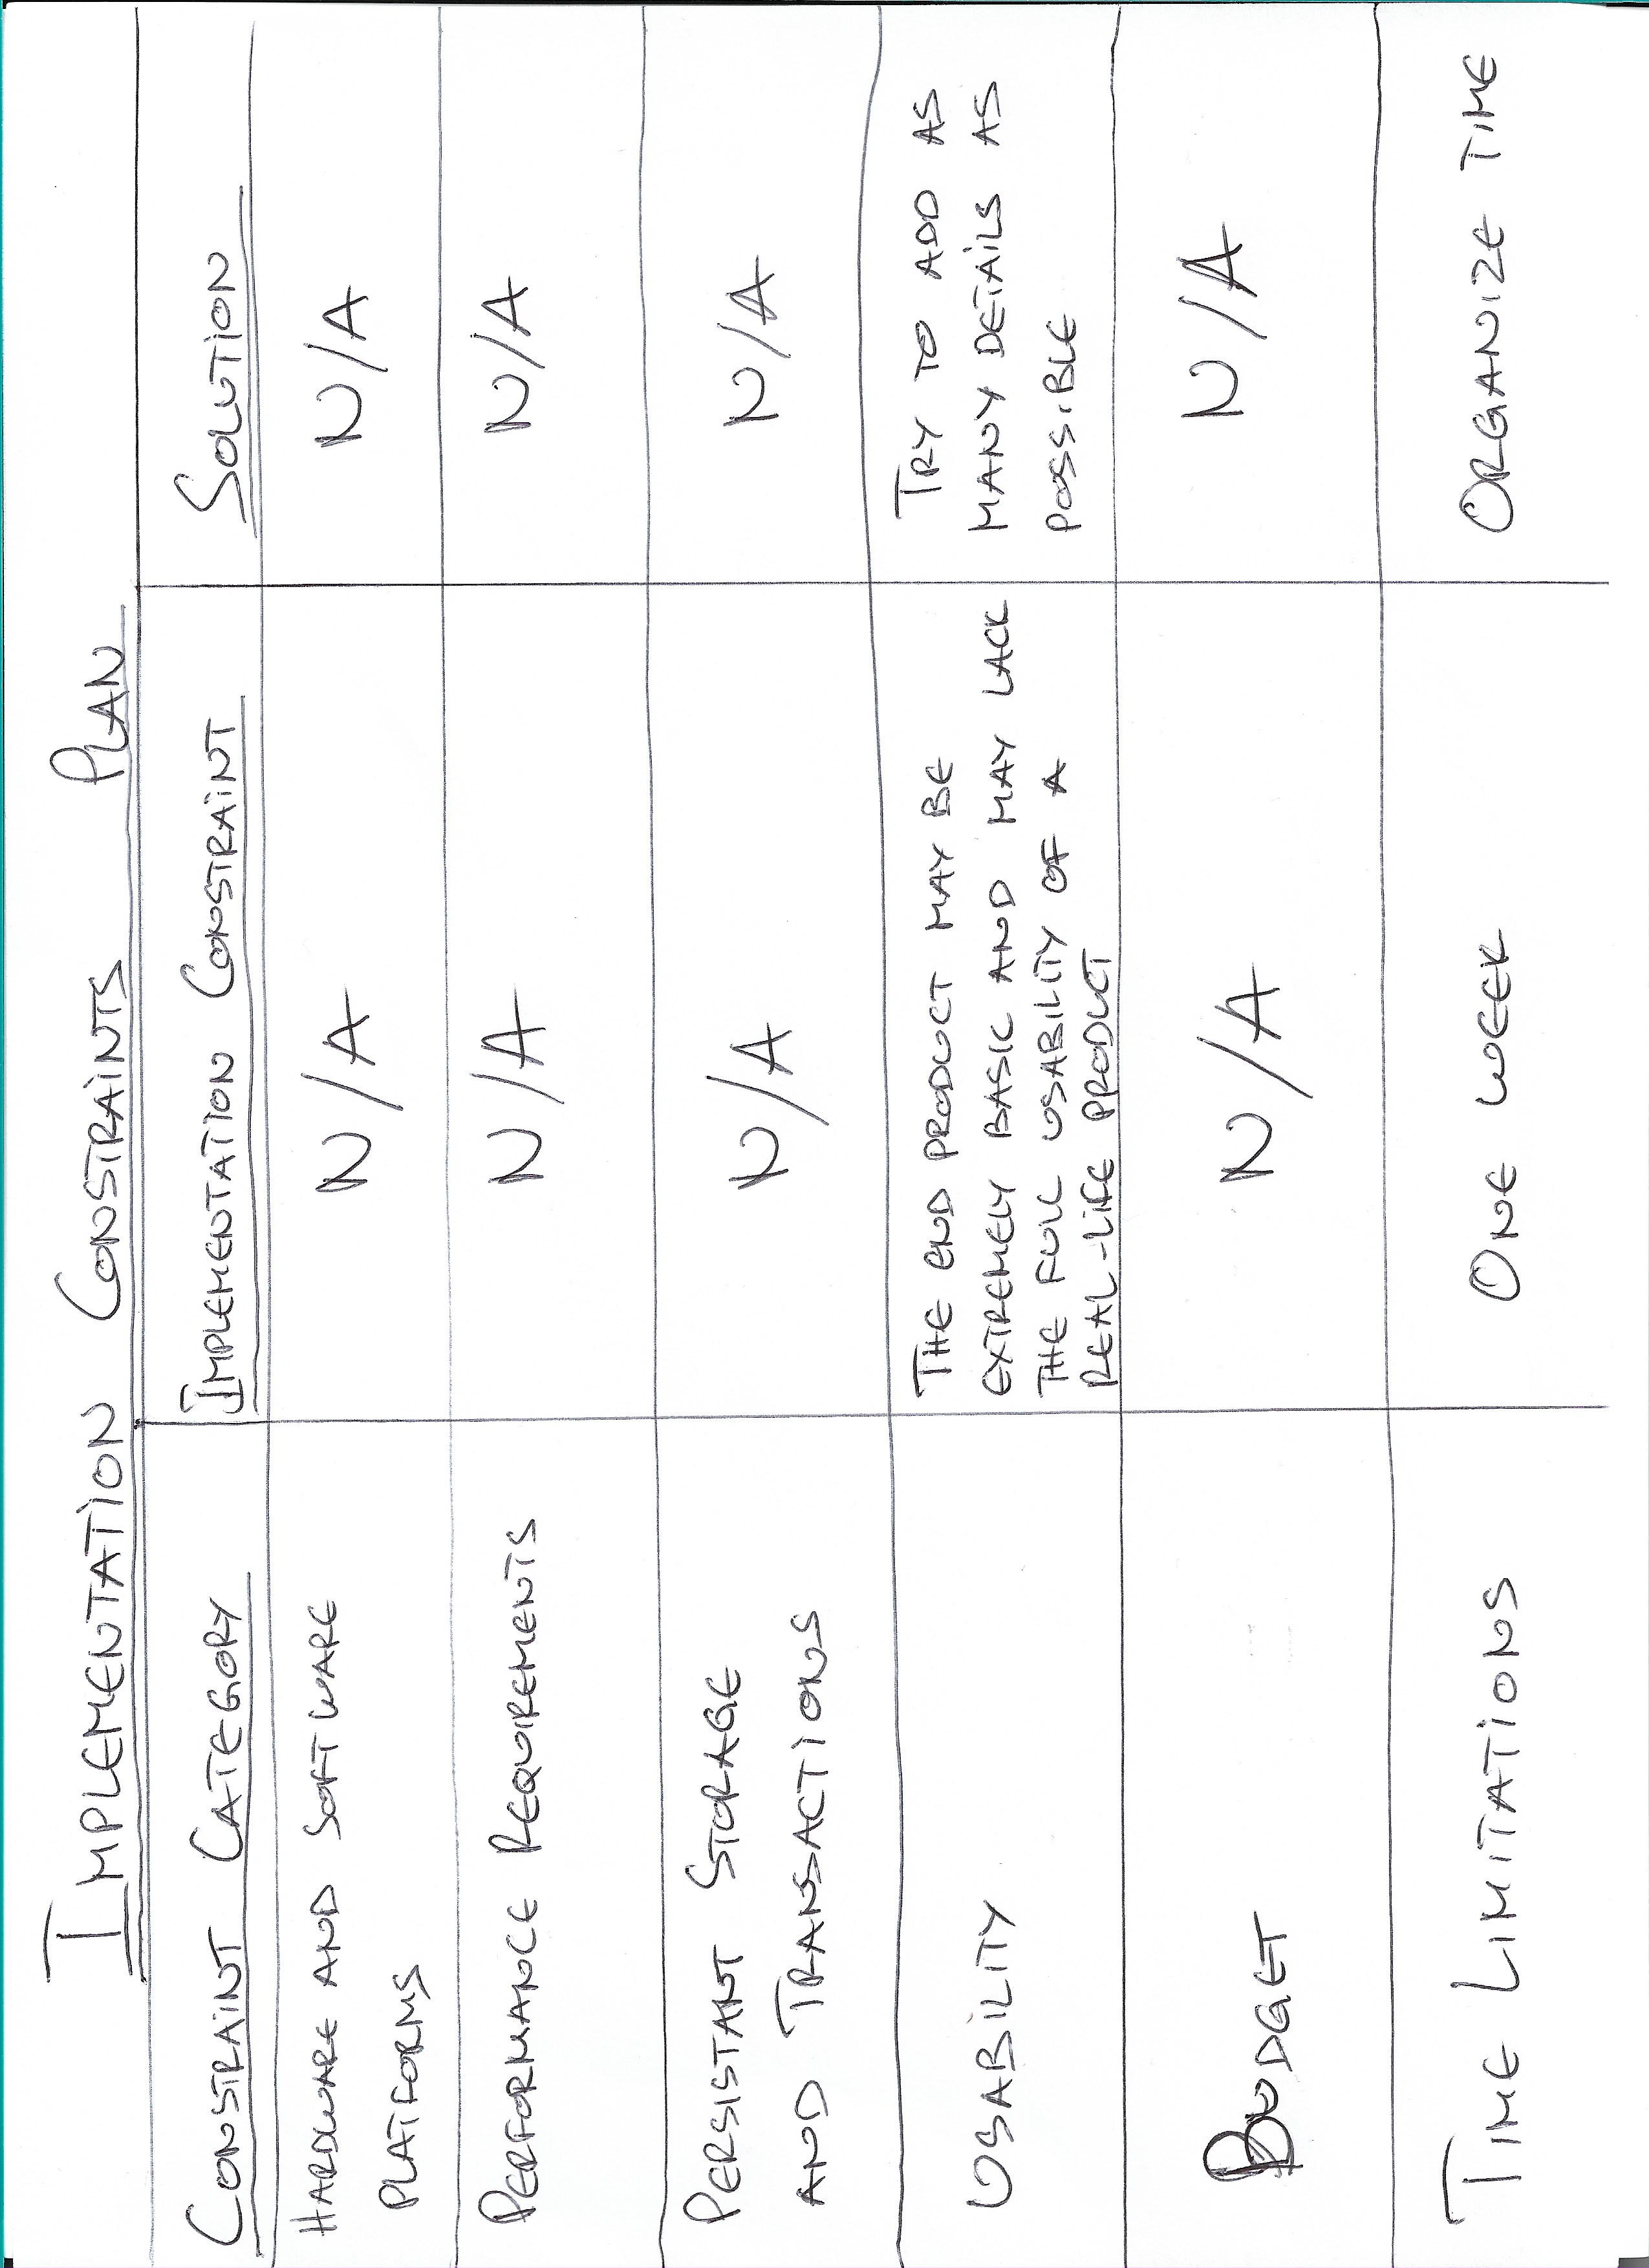 IMPLEMENTATION CONSTRAINTS PLAN
CONSTRAINT CATEGORY
IMPLEMENTATION CONSTRAINT
SOLUTION
HARDWARE AND SOFTWARE
PLATFORMS
N/A
N/A
PERFORMANCE REQUIREMENTS
N/A
N/A
PERSISTANT STORAGE
AND TRANSACTIONS
N/A
N/A
USABILITY
THE END PRODUCT MAY BE
EXTREMELY BASIC AND MAY LACK
THE FULL USABILITY OF A
REAL-LIFE PRODUCT
TRY TO ADD AS
MANY DETAILS AS
POSSIBLE
BUDGET
N/A
N/A
TIME LIMITATIONS
ONE WEEK
ORGANIZE TIME